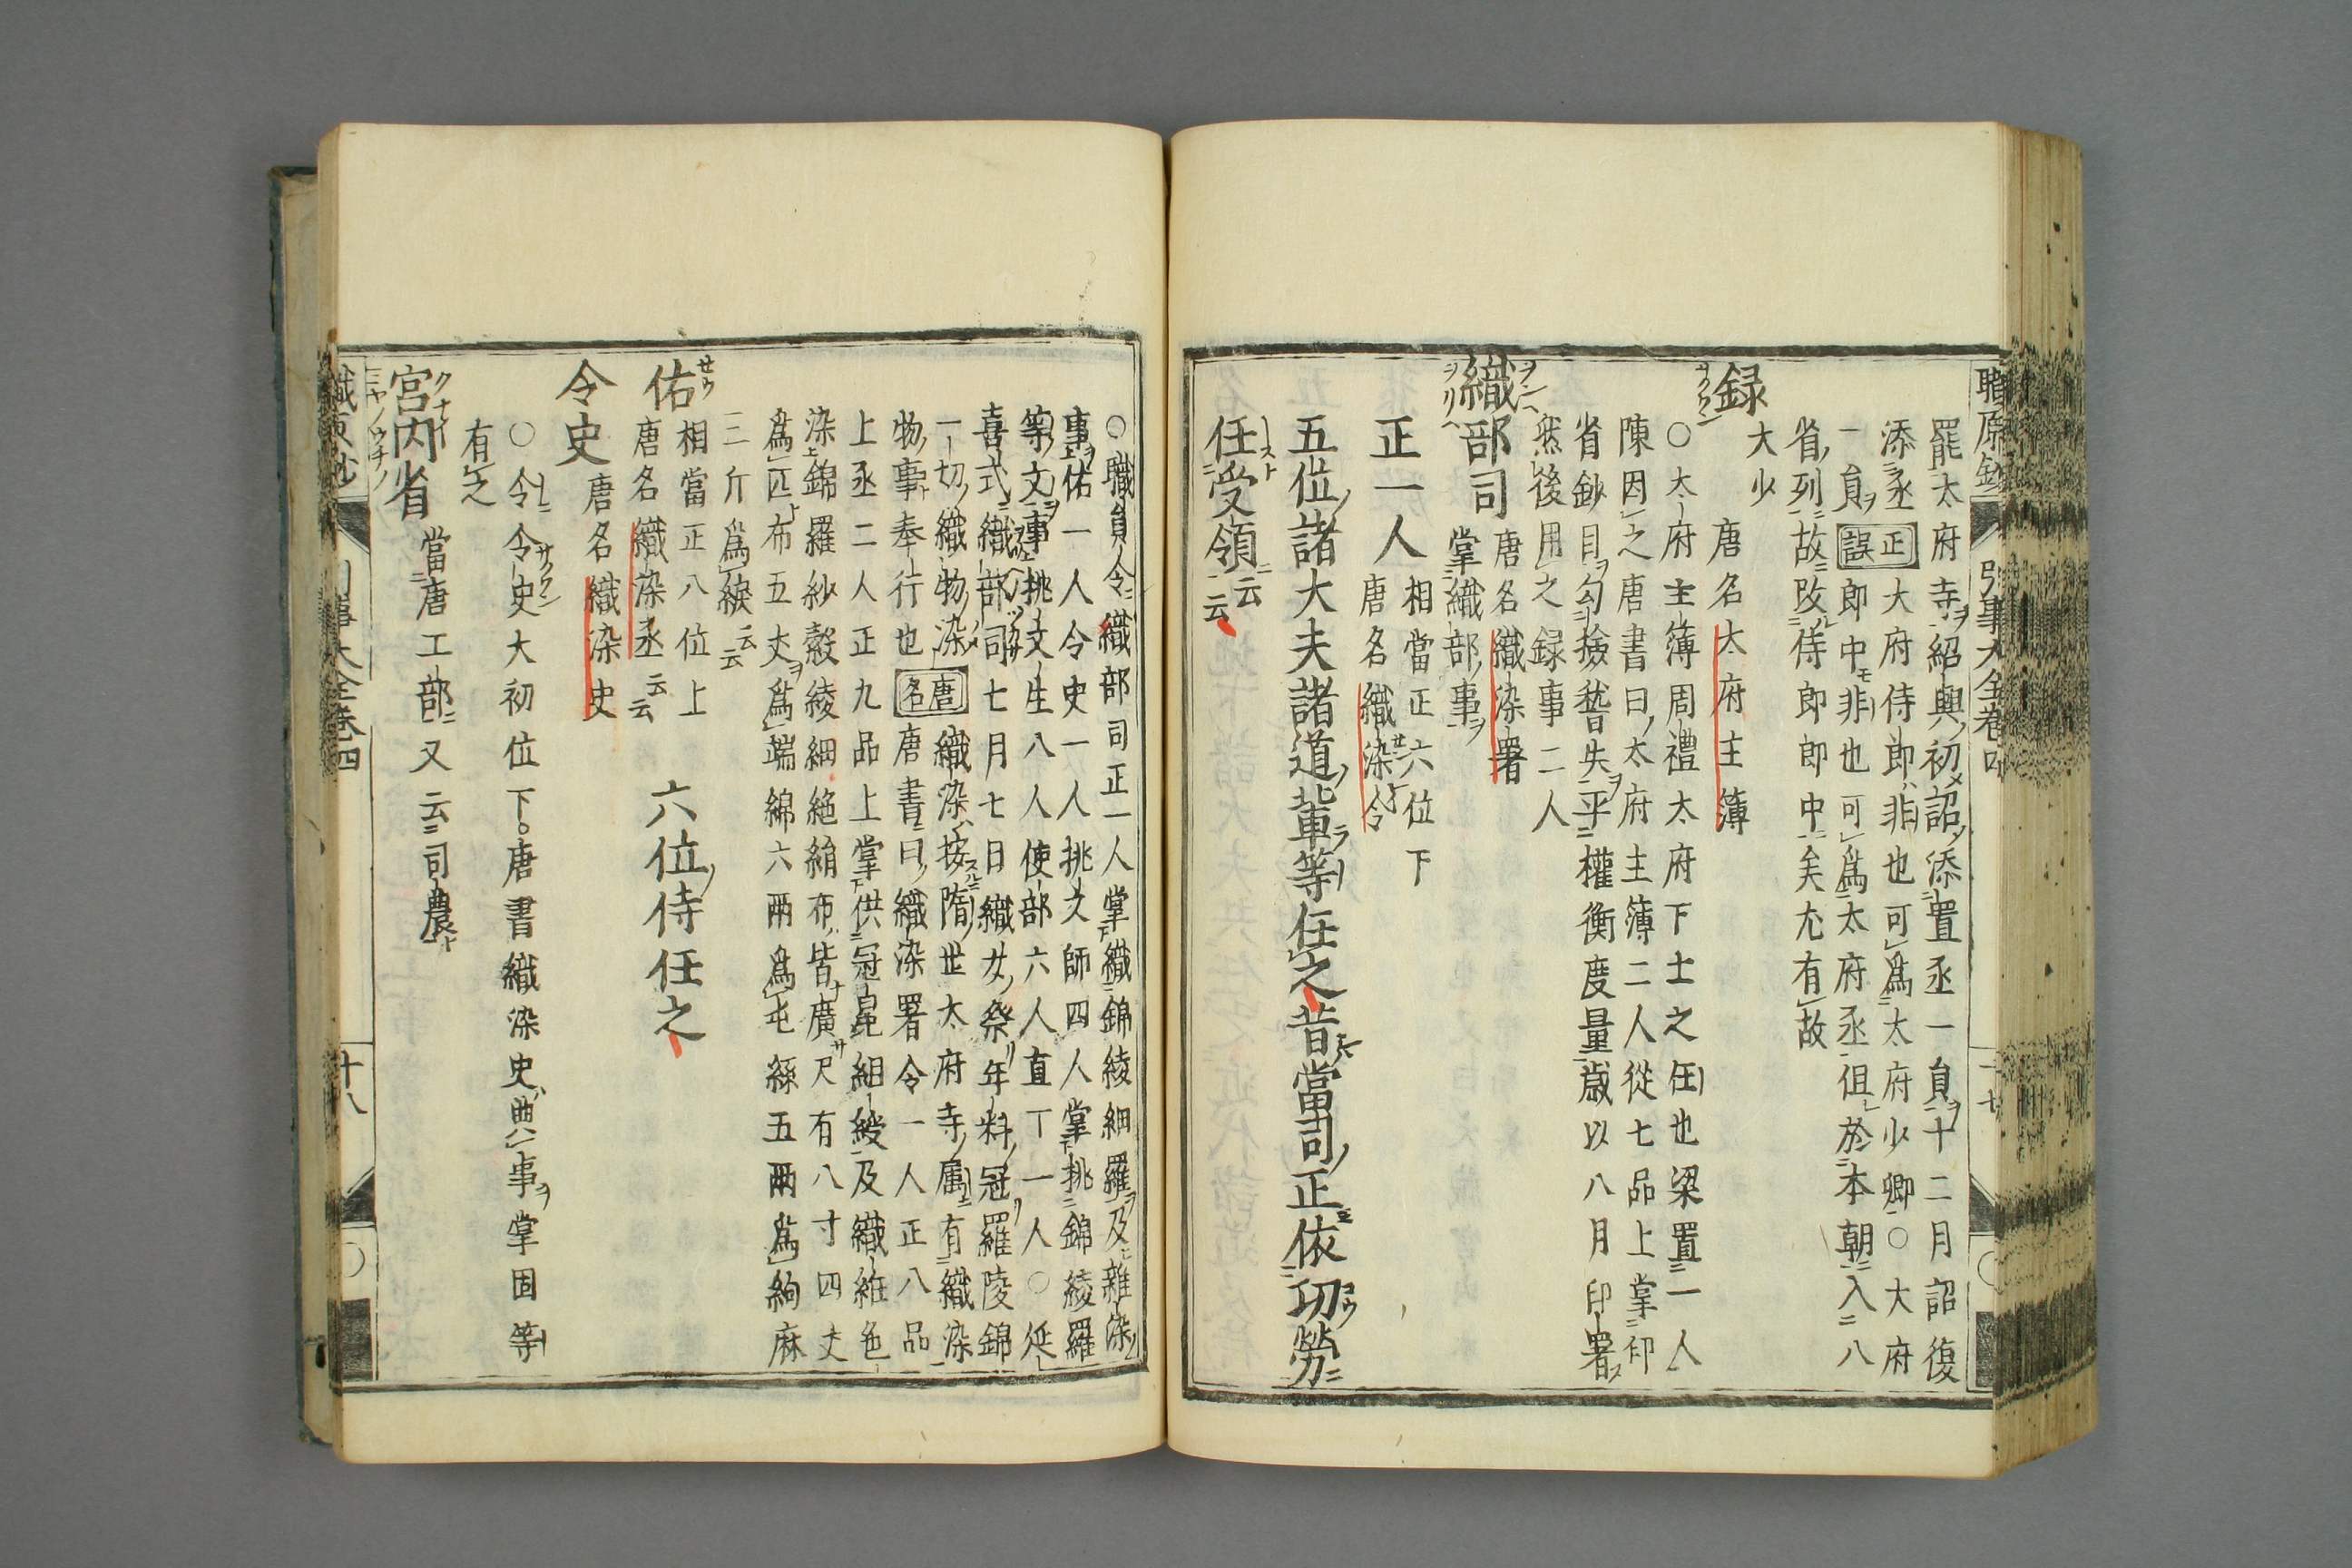 職原鈔 引事大全卷四 十七
罷太府寺紹興初詔添置丞一員十二月詔復
添丞正大府侍郎非也可爲太府少卿○大府
一員誤郎中非也可爲太府丞但於本朝入八
省列故改侍郎郎中矣尤有故
大少
録 唐名太府主簿
○太府主簿周禮太府下士之任也梁置一人
陳因之唐書曰太府主簿二人從七品上掌印
省鈔目勾撿誓失平權衡度量歳以八月印署
然後用之録事二人
織部司 唐名織染署
掌織部事
正一人 相當正六位下
唐名織染令
五位諸大夫諸道輩等任之昔當司正依功勞
任受領云云
○職員令織部司正一人掌織錦綾紬羅及雜染
事佑一人令史一人挑文師四人掌挑錦綾羅
等文事挑文生八人使部六人直丁一人○延
喜式織部司七月七日織女祭年料冠羅陵錦
一切織物染唐名織染按隋世太府寺属有織染
物事奉行也唐書曰織染署令一人正八品
上丞二人正九品上掌供冠冕組綬及織絍色
染錦羅紗縠綾紬絁絹布皆廣尺有八寸四丈
爲匹布五丈爲端綿六兩爲屯絲五兩爲絇麻
二斤爲綟云云
佑 相當正八位上
唐名織染丞云云 六位侍任之
令史 唐名織染史
○令令史大初位下唐書織染史典事掌固等
有之
宮内省 當唐工部又云司農
職原抄 引事大全卷四 十八